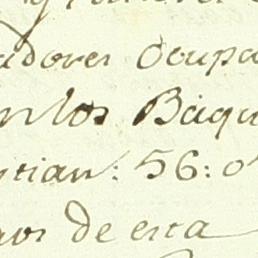 adores Ocupa
nlos Báqu
ntian: 56: o
nos de esta